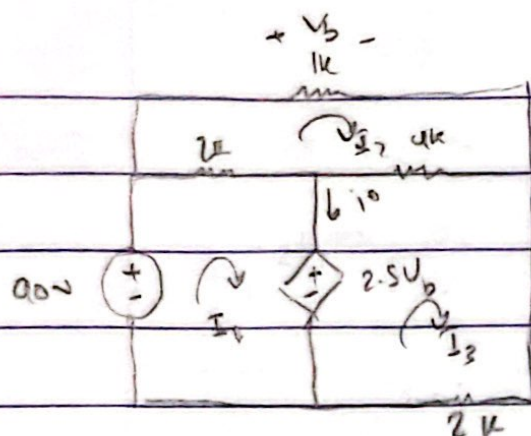 + Vb -
1k
I2
2k
4k
io
+
-
90v
I1
+
-
2.5Vb
I3
2k